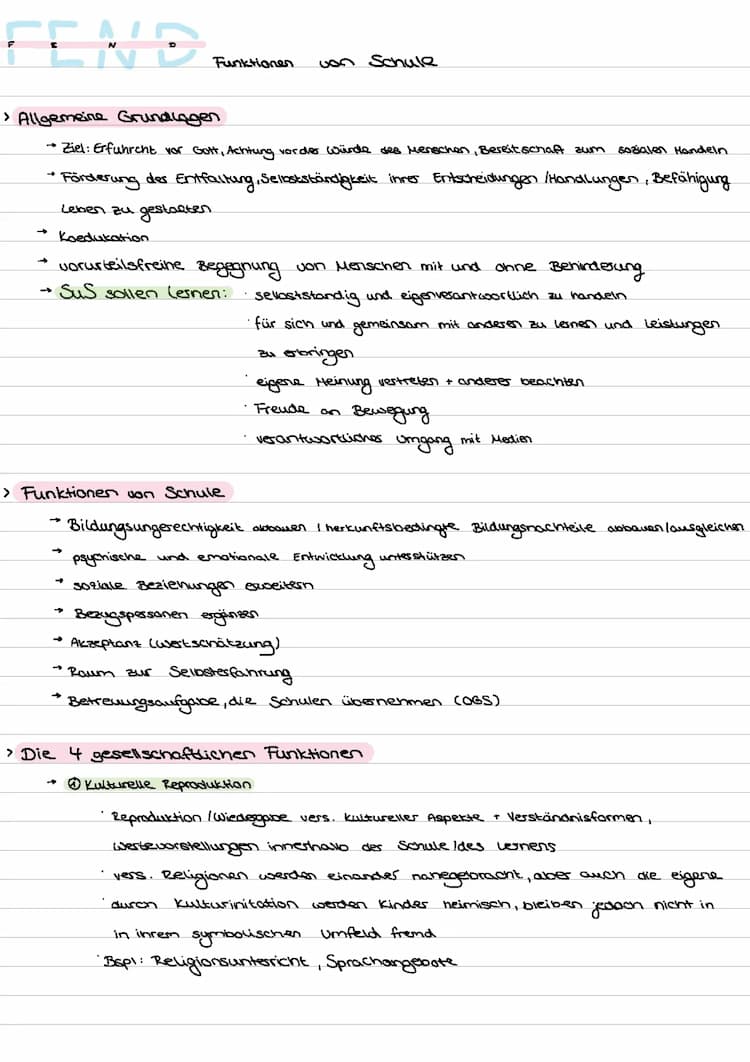 FEND
F E N D
Funktionen von Schule
> Allgemeine Grundlagen
→ Ziel: Erfuhrcht vor Gott, Achtung vor der Würde des Menschen, Bereitschaft zum sozialen Handeln
→ Förderung der Entfaltung, Selbstständigkeit ihrer Entscheidungen / Handlungen, Befähigung
Leben zu gestalten
→ Koedukation
→ vorurteilsfreihe Begegnung von Menschen mit und ohne Behinderung
→ SuS sollen lernen: · selbstständig und eigenverantwortlich zu handeln
· für sich und gemeinsam mit anderen zu lernen und Leistungen
zu erbringen
· eigene Meinung vertreten + anderer beachten
· Freude an Bewegung
· verantwortliches Umgang mit Medien
> Funktionen von Schule
→ Bildungsungerechtigkeit abbauen / herkunftsbedingte Bildungsnachteile abbauen/ausgleichen
→ psychische und emotionale Entwicklung unterstützen
→ soziale Beziehungen erweitern
→ Bezugspersonen ergänzen
→ Akzeptanz (Wertschätzung)
→ Raum zur Selbsterfahrung
→ Betreuungsaufgabe, die Schulen übernehmen (OGS)
> Die 4 gesellschaftlichen Funktionen
→ ① Kulturelle Reproduktion
· Reproduktion / Wiedergabe vers. kultureller Aspekte + Verständnisformen,
Wertevorstellungen innerhalb der Schule / des Lernens
· vers. Religionen werden einander nahegebracht, aber auch die eigene
· durch Kulturinitation werden Kinder heimisch, bleiben jedoch nicht in
in ihrem symbolischen Umfeld fremd
· Bspl: Religionsunterricht, Sprachangebote